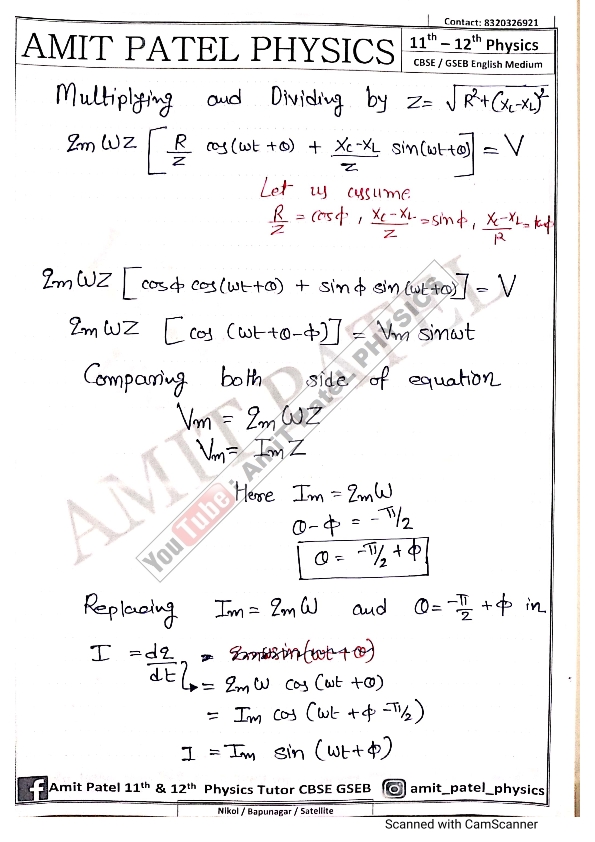 Contact: 8320326921
AMIT PATEL PHYSICS
11th – 12th Physics
CBSE / GSEB English Medium
Multiplying and Dividing by Z = √R²+(Xc-XL)²
qm ωZ [R/Z cos(ωt+θ) + Xc-XL/Z sin(ωt+θ)] = V
Let us assume
R/Z = cosϕ, Xc-XL/Z = sinϕ, Xc-XL/R = tanϕ
qm ωZ [cosϕ cos(ωt+θ) + sinϕ sin(ωt+θ)] = V
qm ωZ [cos (ωt+θ-ϕ)] = Vm sinωt
Comparing both side of equation
Vm = qm ωZ
Vm = Im Z
Here Im = qm ω
θ-ϕ = -π/2
θ = -π/2 + ϕ
Replacing Im = qm ω and θ = -π/2 + ϕ in
I = dq/dt = qmωsin(ωt+θ)
= qm ω cos (ωt+θ)
= Im cos (ωt+ϕ-π/2)
I = Im sin (ωt+ϕ)
AMIT PATEL
YouTube : AmiT PaTeL PHYSICS
Amit Patel 11th & 12th Physics Tutor CBSE GSEB
amit_patel_physics
Nikol / Bapunagar / Satellite
Scanned with CamScanner